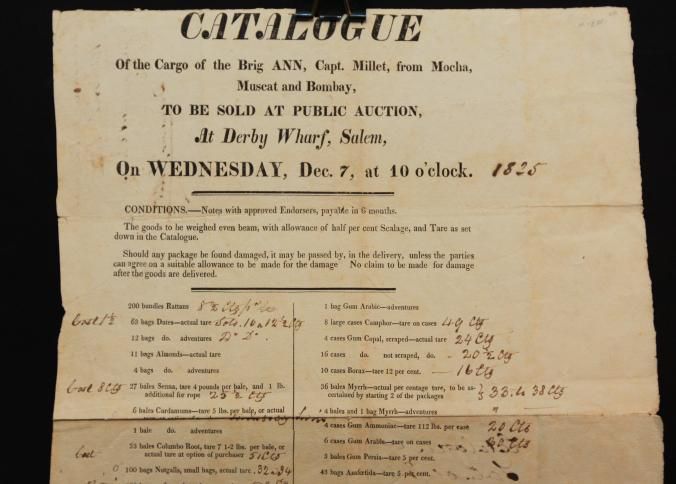 CATALOGUE
Of the Cargo of the Brig ANN, Capt. Millet, from Mocha,
Muscat and Bombay,
TO BE SOLD AT PUBLIC AUCTION,
At Derby Wharf, Salem,
On WEDNESDAY, Dec. 7, at 10 o'clock. 1825
CONDITIONS.—Notes with approved Endorsers, payable in 6 months.
The goods to be weighed even beam, with allowance of half per cent Scalage, and Tare as set
down in the Catalogue.
Should any package be found damaged, it may be passed by, in the delivery, unless the parties
can agree on a suitable allowance to be made for the damage No claim to be made for damage
after the goods are delivered.
200 bundles Rattans
Cost 1½ 63 bags Dates—actual tare Sold. 10 a 12½ Cts
12 bags do. adventures Do Do.
11 bags Almonds—actual tare
4 bags do. adventures
Cost 8 Cts 27 bales Senna, tare 4 pounds per bale, and 1 lb.
additional for rope 25½ Cts
6 bales Cardamums—tare 5 lbs. per bale, or actual
1 bale do. adventures
Cost 53 bales Columbo Root, tare 7 1-2 lbs. per bale, or
actual tare at option of purchases 51 Cts
100 bags Nutgalls, small bags, actual tare . 32 a 34
1 bag Gum Arabic—adventures
8 large cases Camphor—tare on cases 49 Cts
4 cases Gum Copal, scraped—actual tare 24 Cts
16 cases do. not scraped, do. - 20½ Cts
10 cases Borax—tare 12 per cent. — 16 Cts
36 bales Myrrh—actual per centage tare, to be as-
certained by starting 2 of the packages } 33. to 38 Cts
4 bales and 1 bag Myrrh—adventures "
4 cases Gum Ammoniac—tare 112 lbs. per case 20 Cts
6 cases Gum Arabic—tare on cases Cts
3 bales Gum Persia—tare 5 per cent.
43 bags Assafœtida—tare 5 per cent.